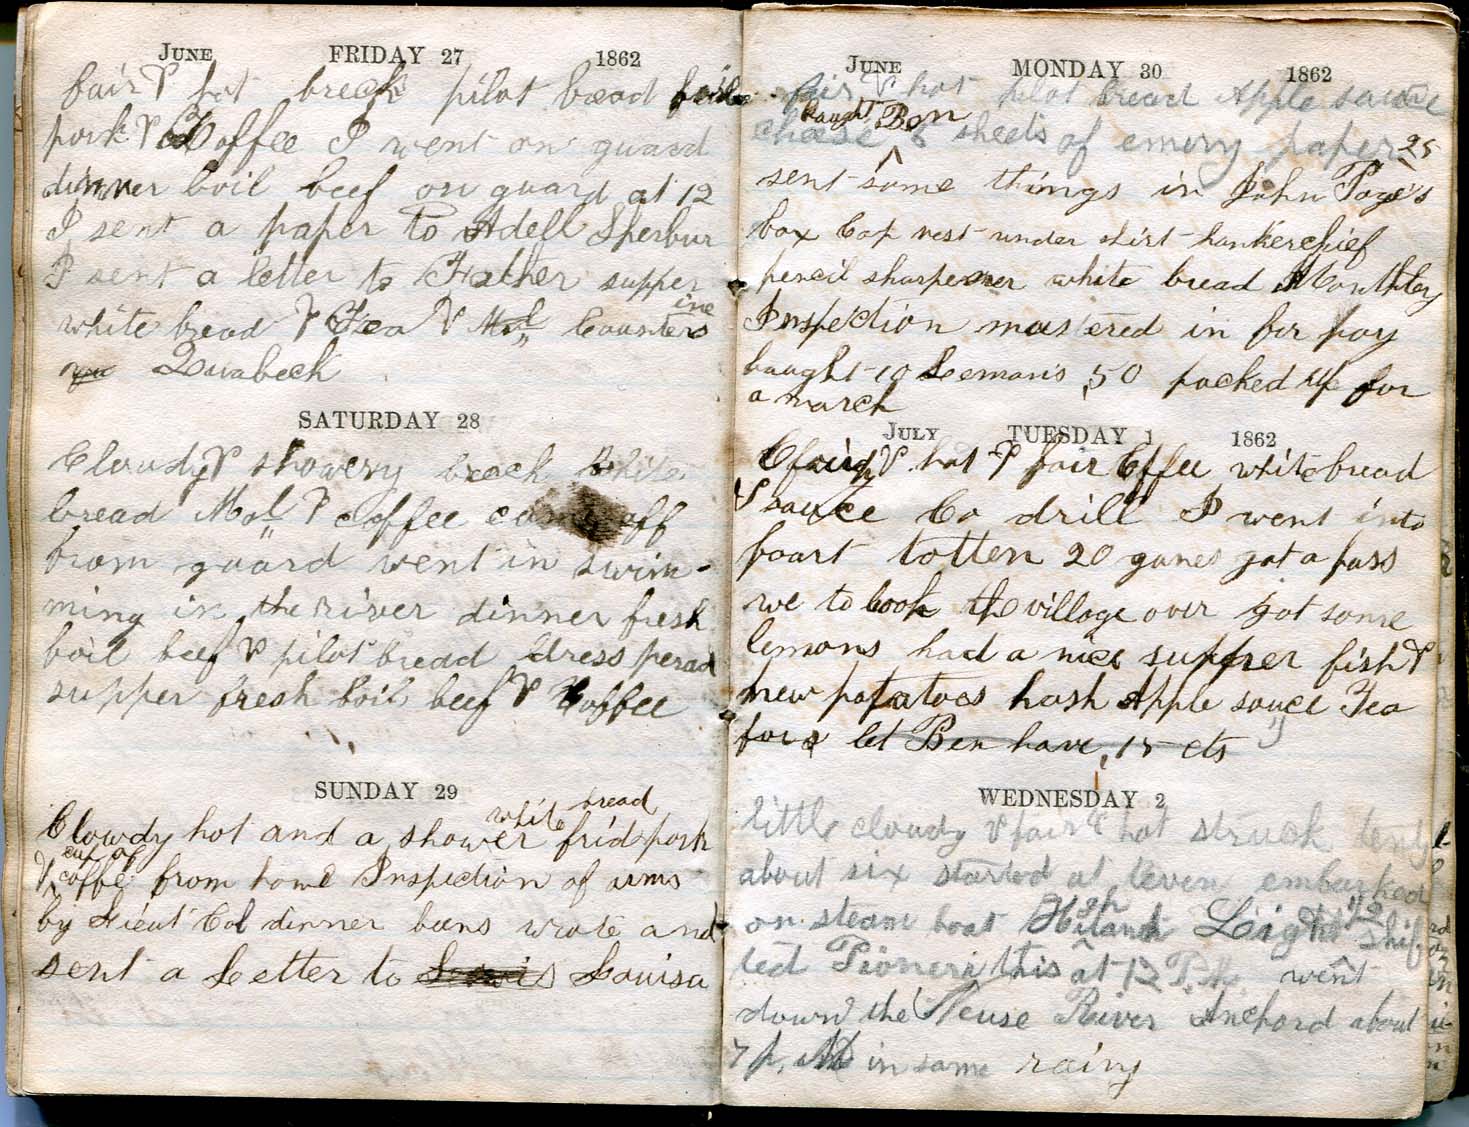 June FRIDAY 27 1862
fair & hot breck pilot bread
pork & Coffee I went on guard
dinner boil beef on guard at 12
I sent a paper to Adell Sperbur
I sent a letter to Father supper
white bread & Tea & Mol,, Counters
ine
Quabeck
SATURDAY 28
Cloudy & showery breck white
bread Mol & coffee come off
from guard went in swim-
ming in the river dinner fresh
boil beef & pilot bread dress perad
supper fresh boil beef & Coffee
SUNDAY 29
white bread
Clowdy hot and a shower frid pork
cup of
& coffe from home Inspection of arms
by Lieut Col dinner beens wrote and
sent a Letter to Louisa
June MONDAY 30 1862
fair & hot pilot bread Apple sauce
baught Ben
cheese 6 sheets of emory paper 25
sent some things in John Page's
box Cap vest under shirt hankerchief
pencil sharpenner white bread Monthley
Inspection mustered in for pay
baught 10 Lemons ,50 packed up for
a march
July TUESDAY 1 1862
& hot & fair Coffee white bread
& sauce Co drill I went into
foart totten 20 gunes got a pass
we to look the village over got some
lemons had a nice supper fish &
new potatoes hash Apple sauce Tea
for let Ben have ,15 cts
WEDNESDAY 2
little cloudy & fair & hot struck tents
about six started at leven embarked
on steam boat Hiland Light shif-
ted Pioneer this at 12 P.M. went
down the Neuse River Anchord about
7 P, M in some rainy